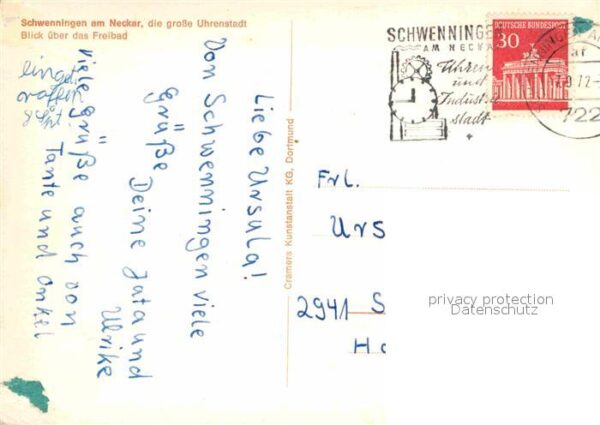 Schwenningen am Neckar, die große Uhrenstadt
Blick über das Freibad
Liebe Ursula!
Von Schwenningen viele
Grüße
Deine Jata und
Ulrike
Viele Grüße auch von
Tante und Onkel
Cramers Kunstanstalt KG, Dortmund
SCHWENNINGE
AM NECKA
Uhren
und
Industrie
stadt
DEUTSCHE BUNDESPOST
30
722
Frl.
Urs
2941 S
Ho
privacy protection
Datenschutz